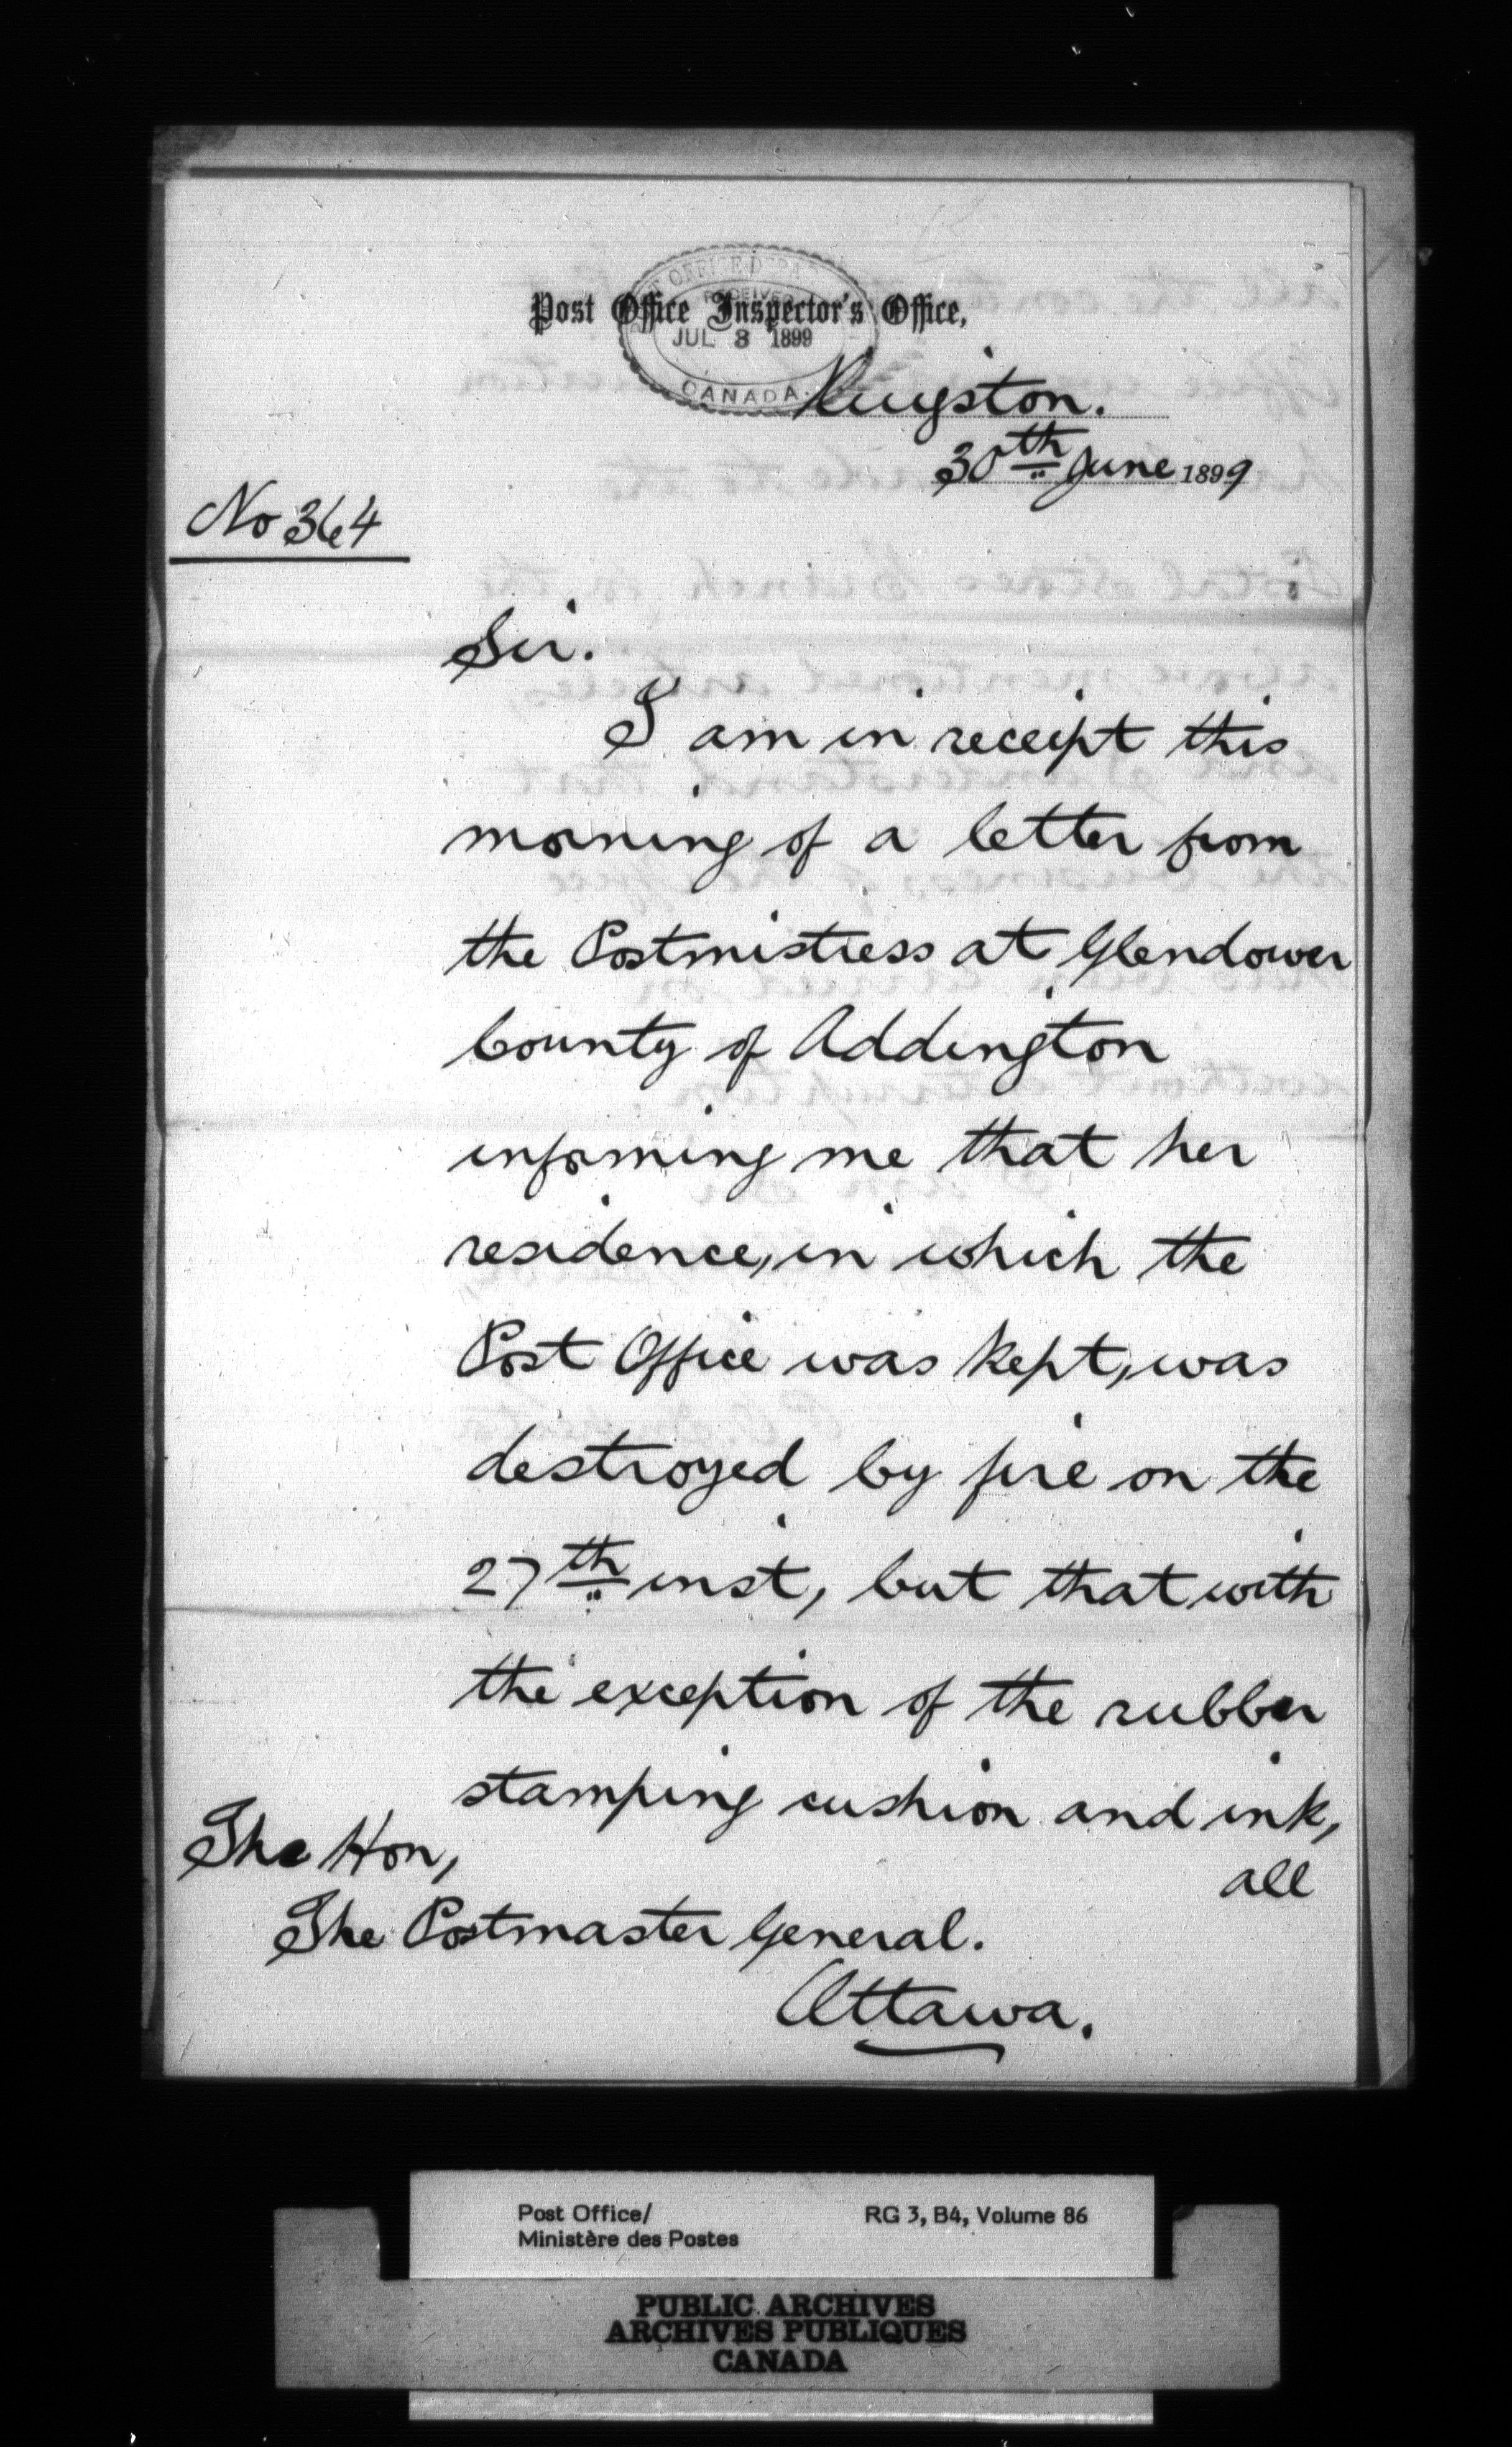 POST OFFICE DEPT
RECEIVED
Post Office Inspector's Office,
JUL 3 1899
CANADA.
Kingston.
30th June 1899
No 364
Sir.
I am in receipt this
morning of a letter from
the Postmistress at Glendower
County of Addington
informing me that her
residence, in which the
Post Office was kept, was
destroyed by fire on the
27th inst, but that with
the exception of the rubber
stamping cushion and ink,
all
The Hon,
The Postmaster General.
Ottawa.
Post Office/
Ministère des Postes
RG 3, B4, Volume 86
PUBLIC ARCHIVES
ARCHIVES PUBLIQUES
CANADA